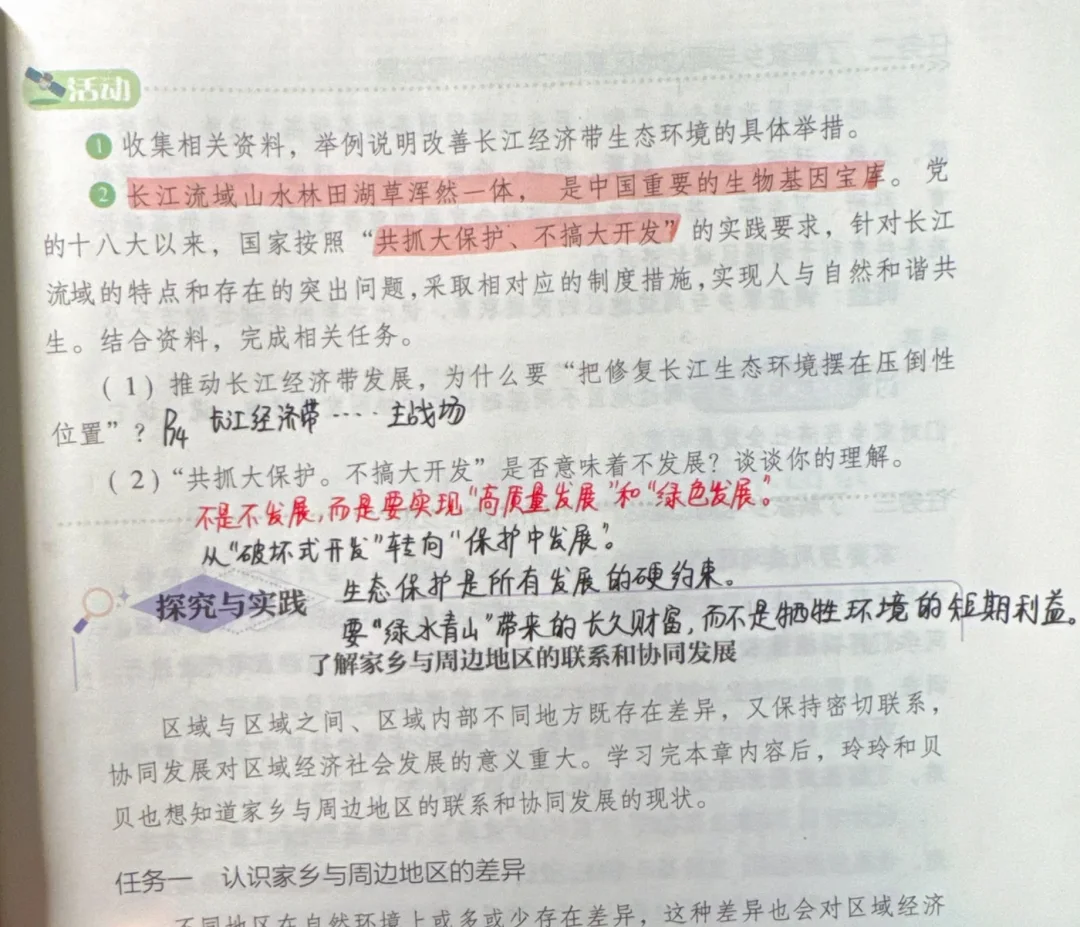 活动
1 收集相关资料，举例说明改善长江经济带生态环境的具体举措。
2 长江流域山水林田湖草浑然一体，是中国重要的生物基因宝库。党
的十八大以来，国家按照“共抓大保护、不搞大开发”的实践要求，针对长江
流域的特点和存在的突出问题，采取相对应的制度措施，实现人与自然和谐共
生。结合资料，完成相关任务。
（1）推动长江经济带发展，为什么要“把修复长江生态环境摆在压倒性
位置”？P84 长江经济带……主战场
（2）“共抓大保护。不搞大开发”是否意味着不发展？谈谈你的理解。
不是不发展，而是要实现“高质量发展”和“绿色发展”。
从“破坏式开发”转向“保护中发展”。
生态保护是所有发展的硬约束。
探究与实践
要“绿水青山”带来的长久财富，而不是牺牲环境的短期利益。
了解家乡与周边地区的联系和协同发展
区域与区域之间、区域内部不同地方既存在差异，又保持密切联系，
协同发展对区域经济社会发展的意义重大。学习完本章内容后，玲玲和贝
贝也想知道家乡与周边地区的联系和协同发展的现状。
任务一 认识家乡与周边地区的差异
不同地区在自然环境上或多或少存在差异，这种差异也会对区域经济